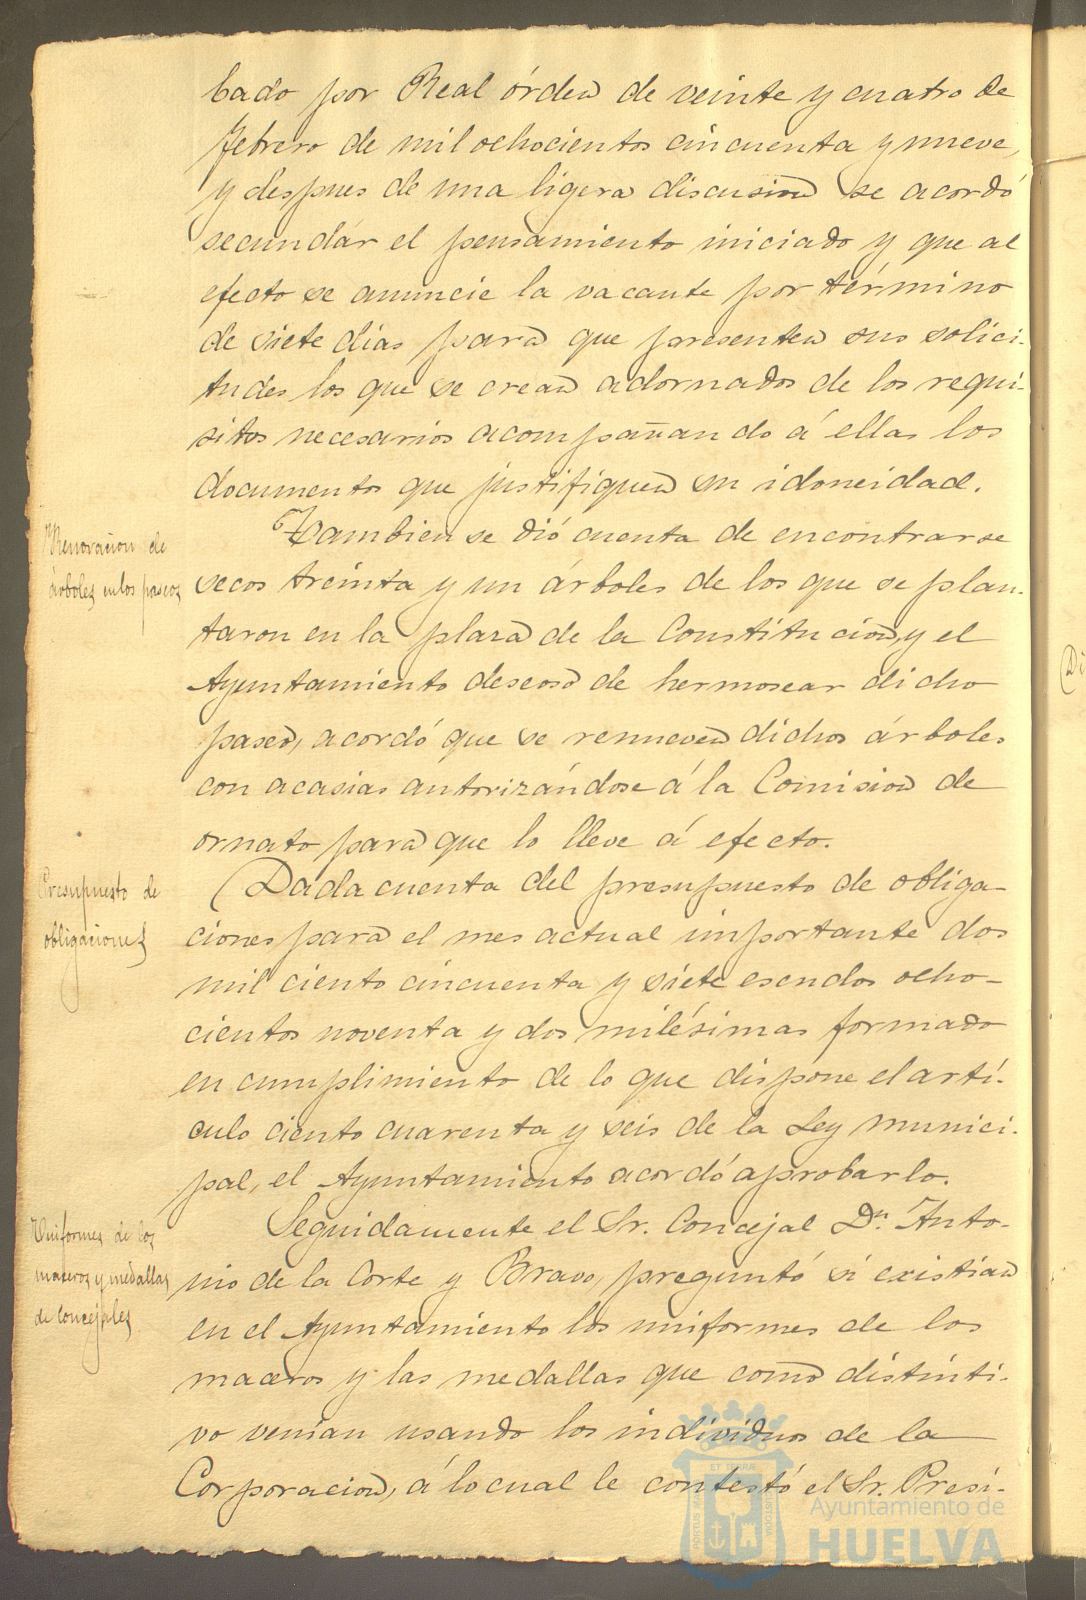 bado por Real órden de veinte y cuatro de
febrero de mil ochocientos cincuenta y nueve,
y despues de una ligera discusion se acordó
secundar el pensamiento iniciado y que al
efecto se anuncie la vacante por término
de siete dias para que presenten sus solici-
tudes los que se crean adornados de los requi-
sitos necesarios acompañando á ellas los
documentos que justifiquen su idoneidad.
Renovacion de
árboles en los paseos
Tambien se dió cuenta de encontrarse
secos treinta y un árboles de los que se plan-
taron en la plaza de la Constitucion, y el
Ayuntamiento deseoso de hermosear dicho
paseo, acordó que se renueven dichos árboles
con acasias autorizándose á la Comision de
ornato para que lo lleve á efecto.
Presupuesto de
obligaciones
Dada cuenta del presupuesto de obliga-
ciones para el mes actual importante dos
mil ciento cincuenta y siete escudos ocho-
cientos noventa y dos milésimas formado
en cumplimiento de lo que dispone el artí-
culo ciento cuarenta y seis de la Ley munici-
pal, el Ayuntamiento acordó aprobarlo.
Uniformes de los
maceros y medallas
de Concejales
Seguidamente el Sr. Concejal Dn. Anto-
nio de la Corte y Bravo, preguntó si existian
en el Ayuntamiento los uniformes de los
maceros y las medallas que como distinti-
vo venian usando los individuos de la
Corporacion, á lo cual le contestó el Sr. Presi-
Ayuntamiento de
HUELVA